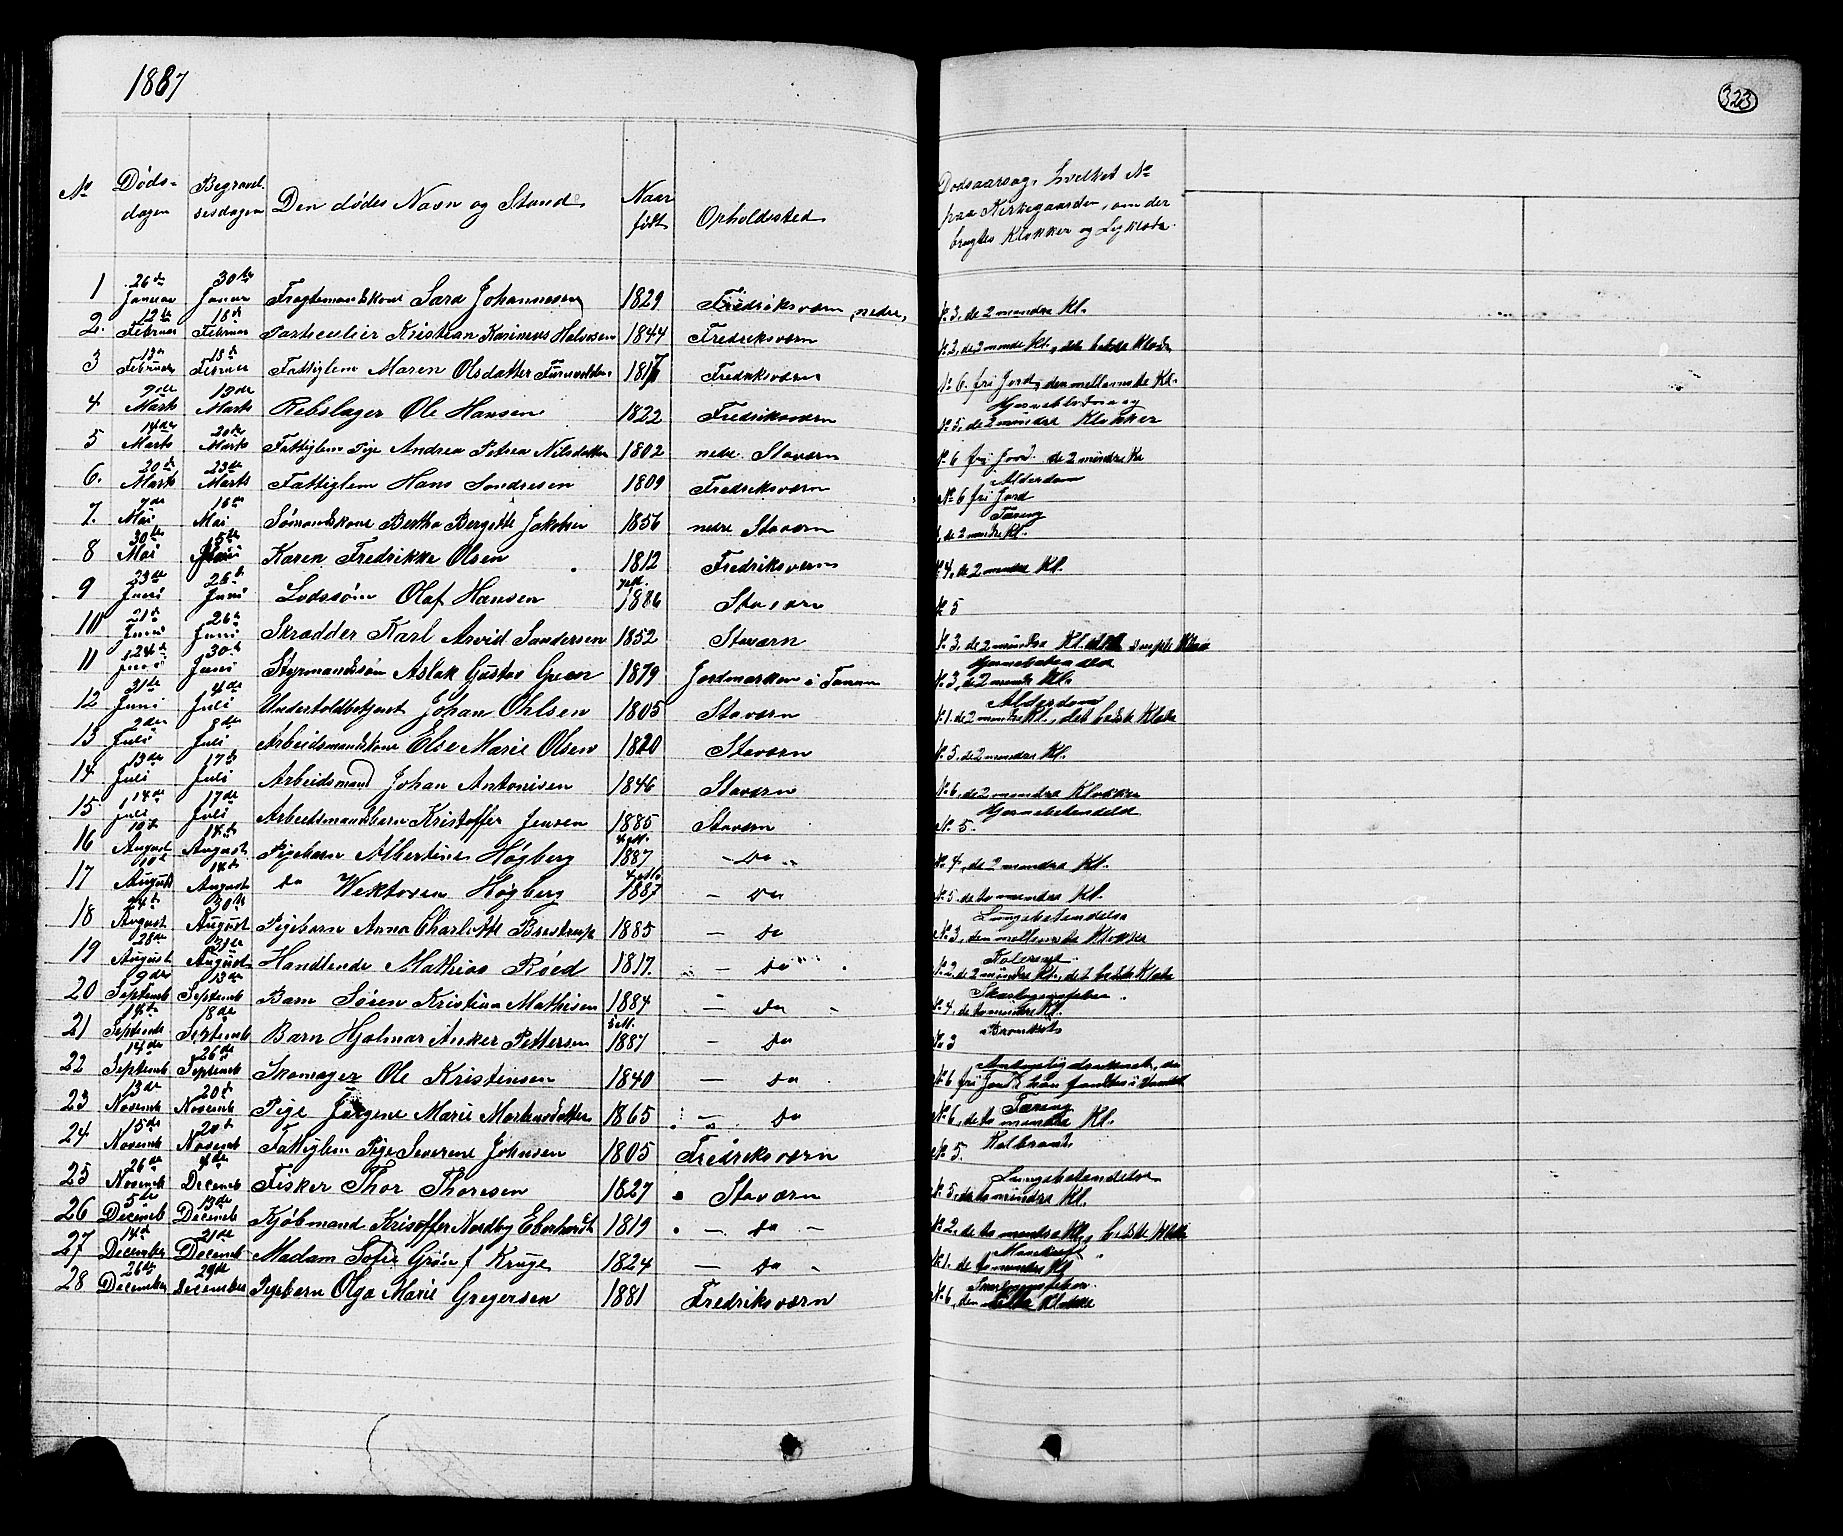 1887
323
No
Døds-
dagen
Begravel
sesdagen
Den dødes Navn og Stand
Naar
født
Opholdssted
Dødsaarsag, hvilket No
paa Kirkegaarden, om der
brugtes Klokker og Ligklæde
1 26de Januar 30te Januar Fragtemandskone Sara Johannesen 1829 Fredriksværn, nedre, No 3, de 2 mindre Kl.
2. 12te Februar 18de Februar Particulier Kristian Halvorsen 1844 Fredriksværn No 2, de 2 mindre Kl., det bedste Klæde
3 13de Februar 18de Februar Fattiglem Maren Olsdatter 1817 Fredriksværn No 6. fri Jord, den mellemste Kl.
4 9de Marts 19de Marts Rebslager Ole Hansen 1822 Fredriksværn No 5, de 2 mindre Klokker
5 14de Marts 20de Marts Fattiglem Pige Andrea Petrea Nilsdatter 1802 nedre Staværn No 6 fri Jord. de 2 mindre Kl
6. 20de Marts 23de Marts Fattiglem Hans Sondresen 1809 Fredriksværn Alderdom No 6 fri Jord
7. 7de Mai 16de Mai Sømandskone Bertha Bergitte Jakobsen 1856 nedre Staværn Tæring de 2 mindre Kl.
8 30te Mai 5te Karen Fredrikke Olsen 1812 Fredriksværn No 4, de 2 mindre Kl.
9 23de Juni 26de Juni Lodssøn Olaf Hansen 1886 Staværn No 5
10 21de Juni 26de Juni Skrædder Karl Arvid Sandersen 1852 Staværn No 3, de 2 mindre Kl.
11 24de Juni 30te Juni Styrmandssøn Aslak Gustav Green 1879 Jordmarken i Tanum Hjernebetændelse No 3, de 2 mindre Kl.
12 31te Juni 4de Juli Undertoldbetjent Johan Ohlsen 1805 Staværn Alderdom No 1. de 2 mindre Kl., det bedste Klæde
13 2den Juli 8de Juli Arbeidsmandskone Else Marie Olsen 1820 Staværn No 5. de 2 mindre Kl.
14 13de Juli 17de Juli Arbeidsmand Johan Antonisen 1846 Staværn No 6. de 2 mindre Klokker
15 14de Juli 17de Juli Arbeidsmandsbarn Kristoffer Jensen 1885 Staværn Hjernebetændelse No 5.
16 10de August 14de August Pigebarn Albertine Høgberg 1887 - Do No 4, de 2 mindre Kl.
17 10de August 14de August Do Wektoren Høgberg 1887 - Do No 5. de to mindre Kl.
18 24de August 30te August Pigebarn Anna Charlotte Brestrup 1885 - Do Lungebetændelse No 3, den mellemste Klokke
19 28de August 31te August Handlende Mathias Røed 1817. - Do No 2, de 2 mindre Kl., det bedste Klæde
20 9de Septemb 13de Septemb Barn Søren Kristian Mathisen 1884 - Do Skarlagensfeber No 4, de to mindre Kl.
21 14de Septemb 18de Septemb Barn Hjalmar Anker Pettersen 1887 - Do Bronkit No 3
22 14de Septemb 26de Septemb Skomager Ole Kristensen 1840 - Do No 6 fri Jord
23 13de Novemb 20de Novemb Pige Jørgine Marie Mortensdatter 1865 - Do Tæring No 6, de to mindre Kl.
24 15de Novemb 20de Novemb Fattiglem Pige Severene Johnsen 1805 Fredriksværn Kolbrand No 5.
25 26de Novemb 4de Decemb Fisker Thor Thoresen 1827 Staværn Lungebetændelse No 5, de to mindre Kl.
26 5de Decemb 13de Decemb Kjøbmand Kristoffer Nordby Eberhardt 1819 - Do - No 2. de to mindre Kl, bedste Klæde
27 14de December 21de Decemb Madam Sofie Grøn f. Kruge 1824 - Do No 1. de to mindre Kl
28 26de December 29de December Pigebarn Olga Marie Gregersen 1881 Fredriksværn Skarlagensfeber. No 6, den Klokke